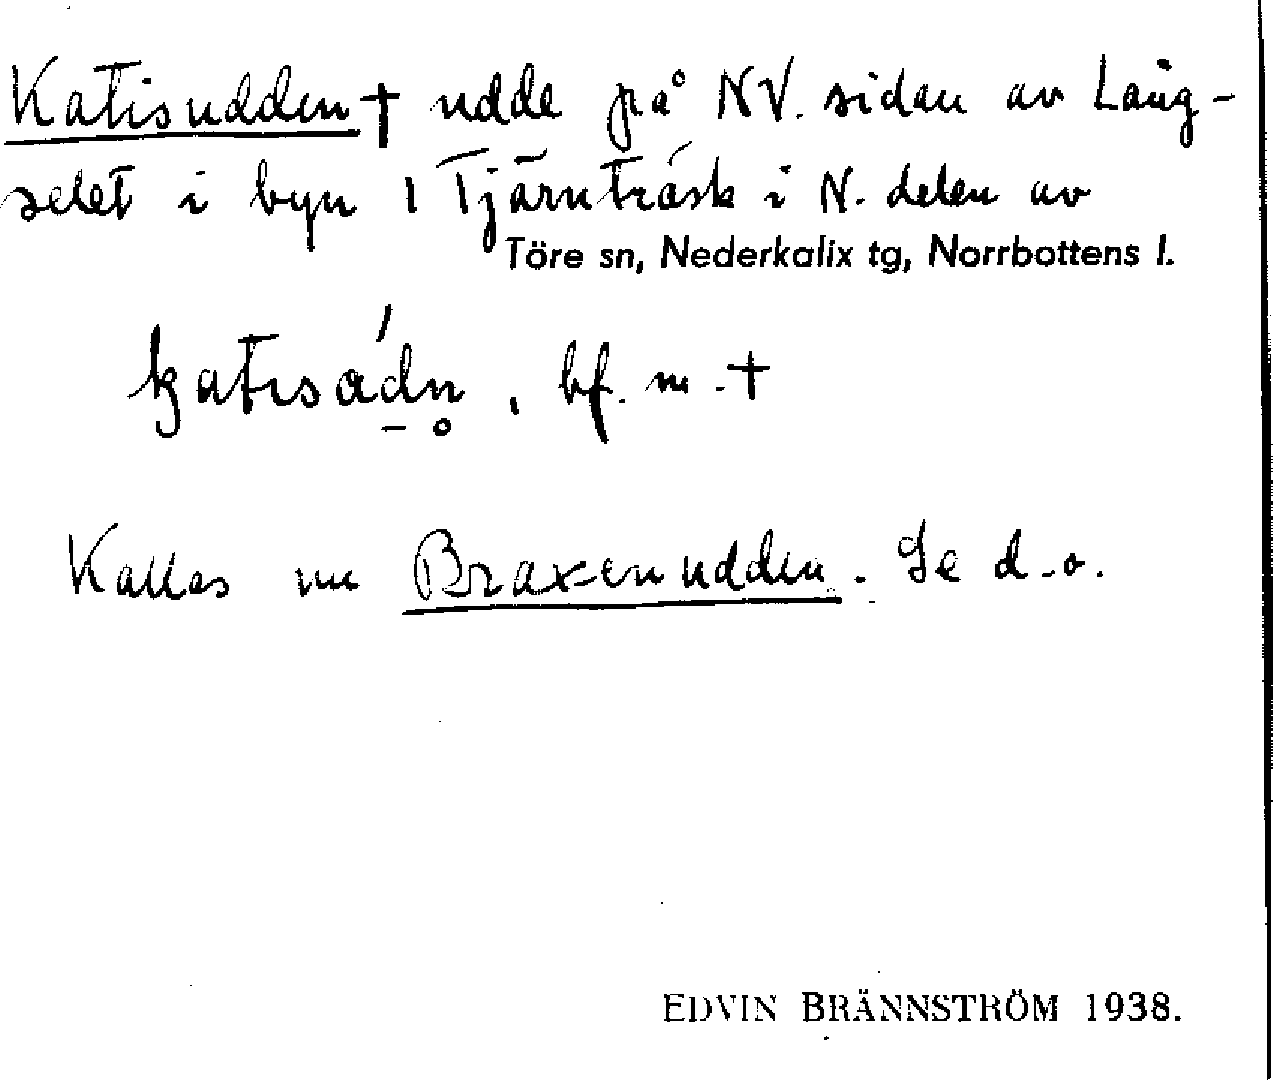 Katisudden † udde på NV. sidan av Lång-
selet i byn 1 Tjärnträsk i N. delen av
Töre sn, Nederkalix tg, Norrbottens l.
bf. m. †
Kallas nu Braxenudden. Se d.o.
EDVIN BRÄNNSTRÖM 1938.